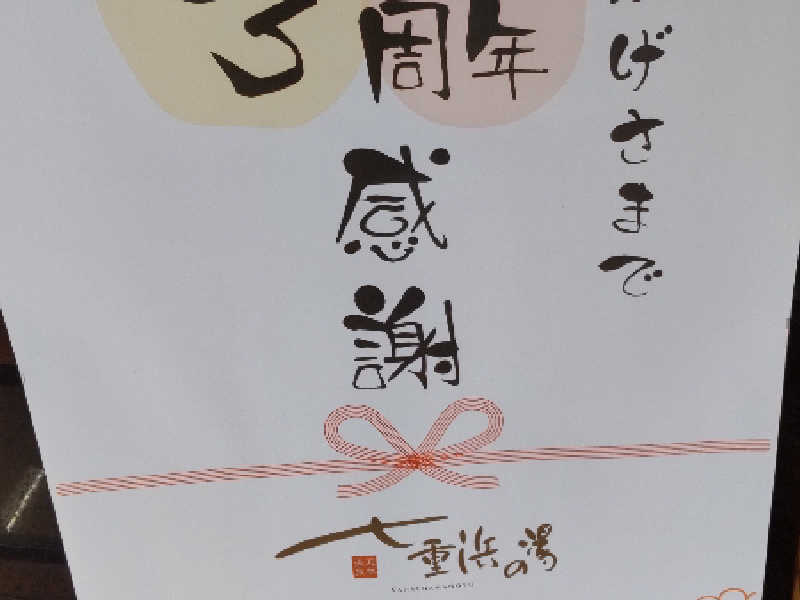 げさまで
周年
感謝
七重浜の湯